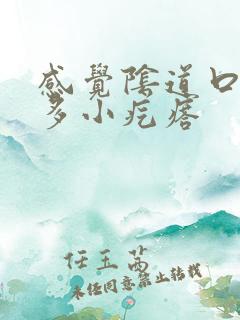 感覺陰道口
多小疙瘩
任玉茜
未经同意禁止转载